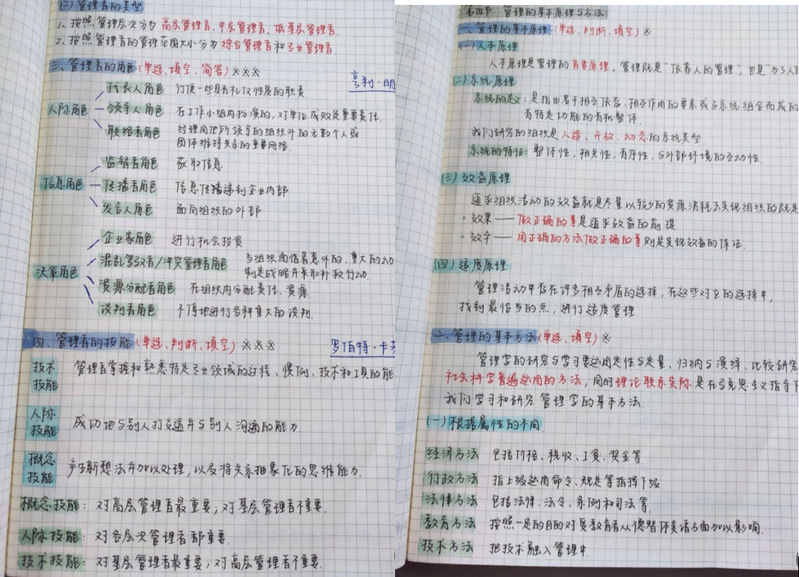 (二)管理者的类型
1、按照管理层次分为高层管理者、中层管理者、低层管理者.
2、按照管理者的管理范围大小分为综合管理者和专业管理者.
三、管理者的角色(单选、填空、简答)※※※
亨利·明
人际角色
代表人角色 行使一些具有礼仪性质的职责
领导人角色 在工作小组内扮演的,对单位成败负重要责任.
联络者角色 对组织
个人或团体维持关系的重要网络.
信息角色
监督者角色 获取信息
传播者角色 信息传播递到企业内部
发言人角色 面向组织的外部
决策角色
企业家角色 进行机会投资
混乱驾驭者/冲突管理者角色 与组织面临着意外的、重大的动
制定战略并采取补救行动.
资源分配者角色 在组织内分配责任、资源
谈判者角色 不停地进行各种重大的谈判.
四、管理者的技能(单选、判断、填空)※※※
罗伯特·卡
技术技能 管理者掌握和熟悉特定专业领域的过程、惯例、技术和工具的能
人际技能 成功地与别人打交道并与别人沟通的能力.
概念技能 产生新想法并加以处理,以及将关系抽象化的思维能力.
概念技能:对高层管理者最重要;对基层管理者不重要.
人际技能:对各层次管理者都重要.
技术技能:对基层管理者最重要;对高层管理者不重要.
第四节 管理的基本原理与方法
一、管理的基本原理(单选、判断、填空)※
(一)人本原理
人本原理是管理的首要原理.管理既是“依靠人的管理”,也是“为了人
(二)系统原理
系统的定义:是指由若干相互依存、相互作用的要素或子系统组合而成的
有特定功能的有机整体.
我们研究的组织是人造、开放、动态的系统类型
系统的特征:整体性,相关性,有序性,与外部环境的互动性.
(三)效益原理
追求组织活动的效益就是尽量以较少的资源消耗去实现组织的既定
·效果——做正确的事是追求效益的前提
·效率——用正确的方法做正确的事则是实现效益的保证.
(四)适度原理
管理活动中存在许多相互矛盾的选择,在这些对立的选择中,
找到最恰当的点,进行适度管理
二、管理的基本方法(单选、判断、填空)※
管理学的研究与学习要运用定性与定量、归纳与演绎、比较研究
社会科学普遍运用的方法,同时理论联系实际是在马克思主义指导下
我们学习和研究管理学的基本方法.
(一)根据属性的不同
经济方法 包括价格、税收、工资、奖金等
行政方法 指上级运用命令、规定等指挥下级
法律方法 包括法律、法令、条例和司法等
教育方法 按照一定的目的对受教育者从德智体美诸方面加以影响.
技术方法 把技术融入管理中.